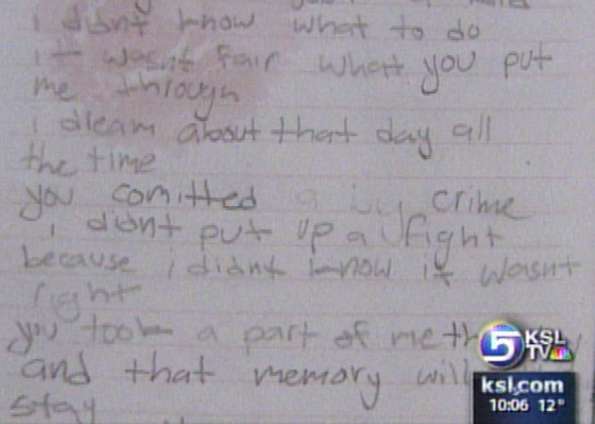 i didnt know what to do
it wasnt fair what you put
me through
i dream about that day all
the time
you comitted a crime
i didnt put up a fight
because i didnt know it wasnt
right
you took a part of me
and that memory will
stay
5 KSL
TV
ksl.com
10:06 12°